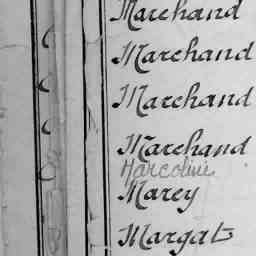 Marchand
Marchand
Marchand
Marchand
Marcoline
Marey
Margats